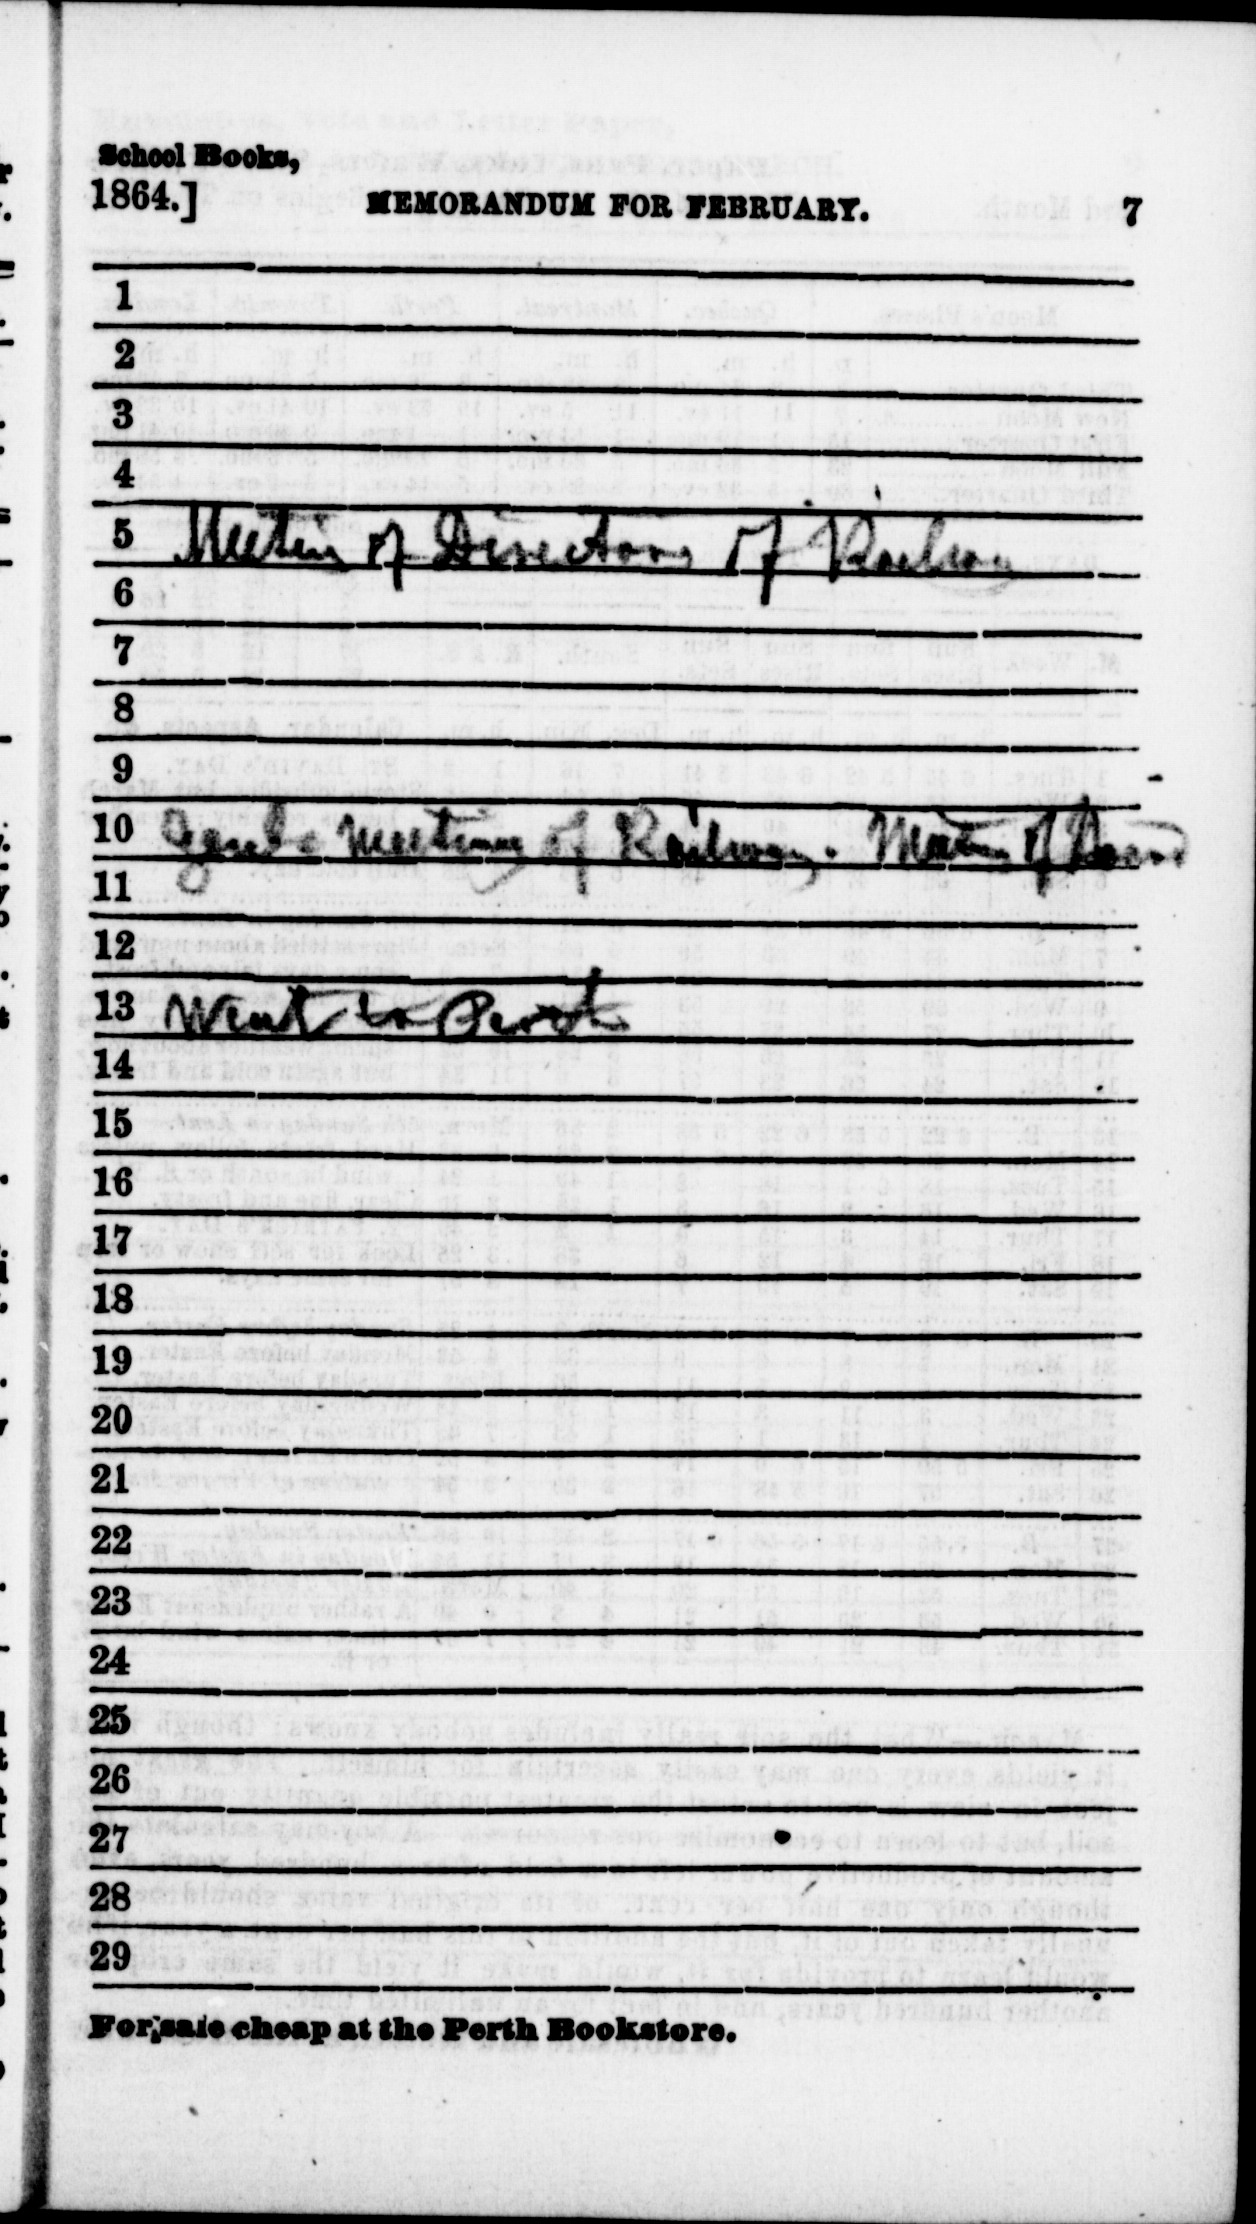 School Books,
1864.] MEMORANDUM FOR FEBRUARY. 7
1
2
3
4
5 Meeting of Directors of Railway
6
7
8
9
10 Genl Meeting of Railway. Meeting of Board
11
12
13 Went to Perth
14
15
16
17
18
19
20
21
22
23
24
25
26
27
28
29
For sale cheap at the Perth Bookstore.